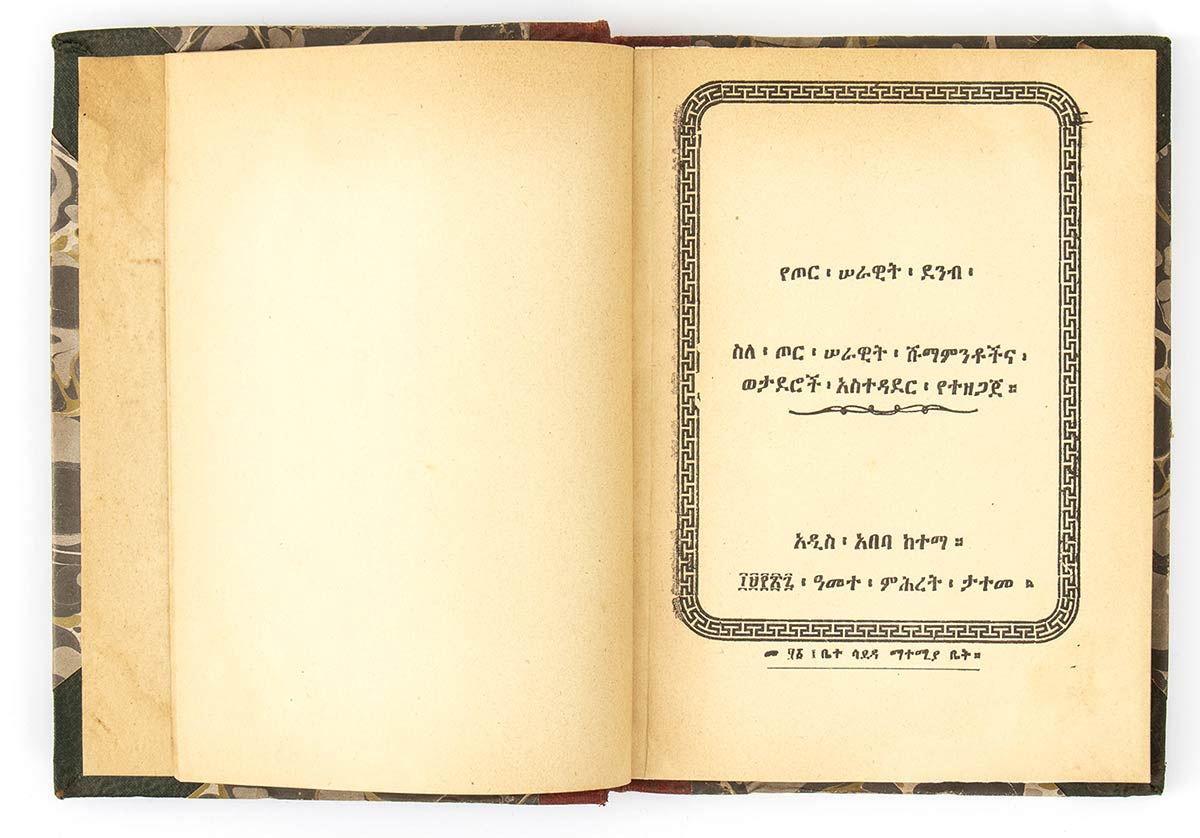 የጦር ፡ ሠራዊት ፡ ደንብ ፡
ስለ ፡ ጦር ፡ ሠራዊት ፡ ሹማምንቶችና ፡
ወታደሮች ፡ አስተዳደር ፡ የተዘጋጀ ።
አዲስ ፡ አበባ ከተማ ።
፲፱፻፳፯ ፡ ዓመተ ፡ ምሕረት ፡ ታተመ ።
ቤተ ሳይዳ ማተሚያ ቤት።